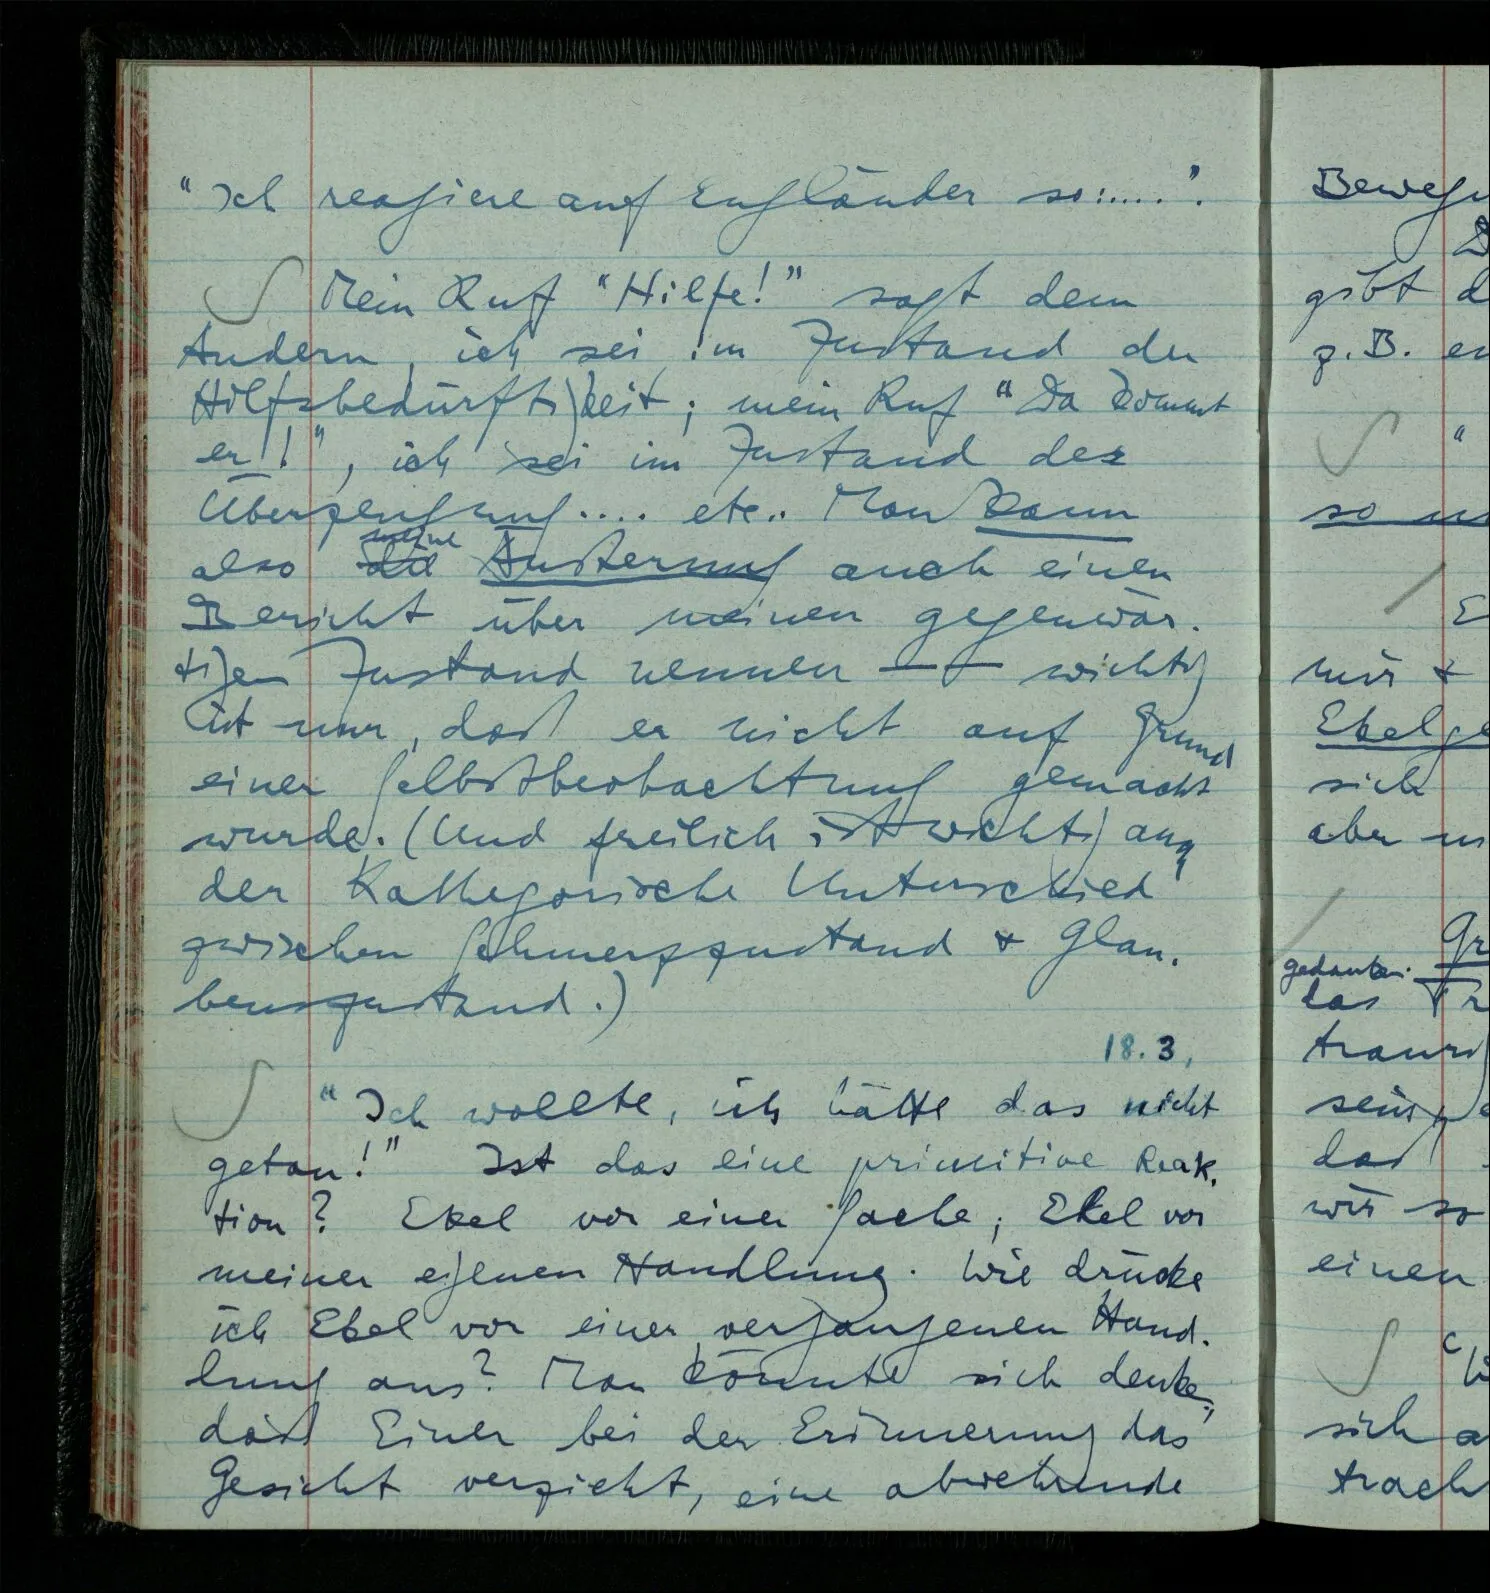 "Ich reagiere auf Engländer so:.....".
Mein Ruf "Hilfe!" sagt dem
Andern, ich sei im Zustand der
Hilfsbedürftigkeit; mein Ruf "Da kommt
er!", ich sei im Zustand der
Überzeugung.... etc.. Man kann
meine
also die Äußerung auch einen
Bericht über meinen gegenwär-
tigen Zustand nennen – – wichtig
ist nur, daß er nicht auf Grund
einer Selbstbeobachtung gemacht
wurde. (Und freilich ist wichtig auch
der Kathegorische Unterschied
zwischen Schmerzzustand & Glau-
benszustand.)
18.3.
"Ich wollte, ich hätte das nicht
getan!" Ist das eine primitive Reak-
tion? Ekel vor einer Sache; Ekel vor
meiner eigenen Handlung. Wie drücke
ich Ekel vor einer vergangenen Hand-
lung aus? Man könnte sich denken,
daß Einer bei der Erinnerung das
Gesicht verzieht, eine abwehrende
gibt d
z.B. en
"
so
mir &
sich
aber
gedanken-
das
daß
wir so
einen
sich a